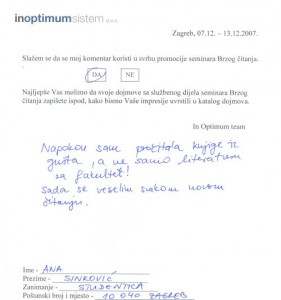 inoptimumsistem d.o.o.
Zagreb, 07.12. – 13.12.2007.
Slažem se da se moj komentar koristi u svrhu promocije seminara Brzog čitanja.
DA NE
Najljepše Vas molimo da svoje dojmove sa službenog dijela seminara Brzog
čitanja zapišete ispod, kako bismo Vaše impresije uvrstili u katalog dojmova.
In Optimum team
Napokon sam pročitala knjige iz
gušta, a ne samo literaturu
za fakultet!
sada se veselim svakom novom
čitanju.
Ime - ANA
Prezime - SINKOVIĆ
Zanimanje - STUDENTICA
Poštanski broj i mjesto - 10 040 ZAGREB